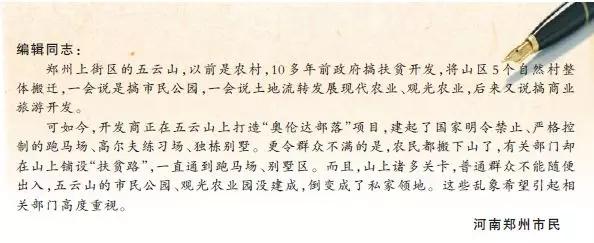 编辑同志：
郑州上街区的五云山，以前是农村，10多年前政府搞扶贫开发，将山区5个自然村整
体搬迁，一会说是搞市民公园，一会说土地流转发展现代农业、观光农业，后来又说搞商业
旅游开发。
可如今，开发商正在五云山上打造“奥伦达部落”项目，建起了国家明令禁止、严格控
制的跑马场、高尔夫练习场、独栋别墅。更令群众不满的是，农民都搬下山了，有关部门却
在山上铺设“扶贫路”，一直通到跑马场、别墅区。而且，山上诸多关卡，普通群众不能随便
出入，五云山的市民公园、观光农业园没建成，倒变成了私家领地。这些乱象希望引起相
关部门高度重视。
河南郑州市民